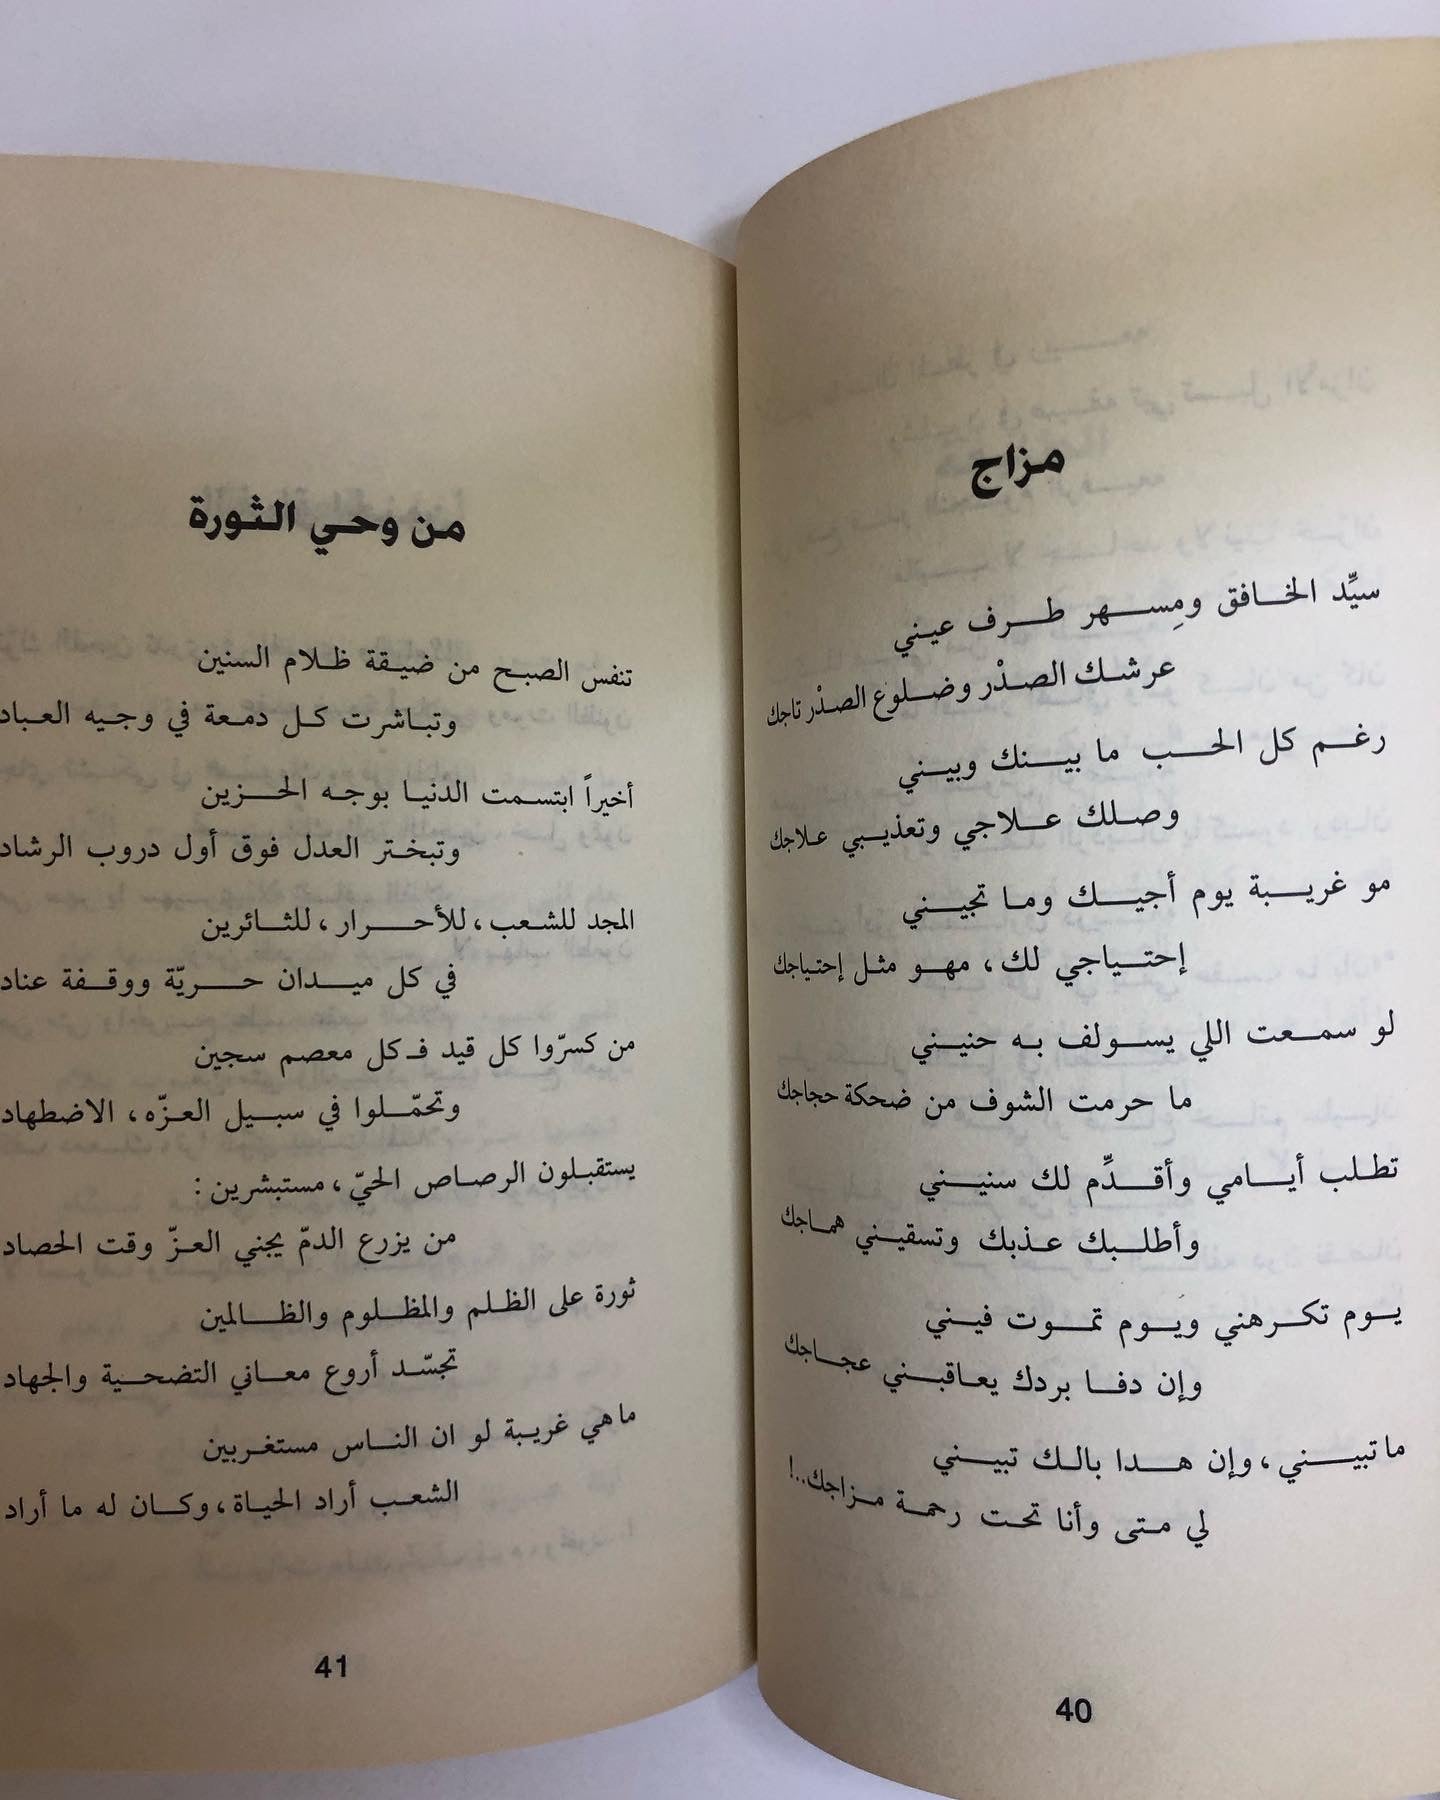 مزاج
سيِّد الخافق ومِسهر طرف عيني
عرشك الصدْر وضلوع الصدْر تاجك
رغم كل الحب ما بينك وبيني
وصلك علاجي وتعذيبي علاجك
مو غريبة يوم أجيك وما تجيني
إحتياجي لك، مهو مثل إحتياجك
لو سمعت اللي يسولف به حنيني
ما حرمت الشوف من ضحكة حجاجك
تطلب أيامي وأقدِّم لك سنيني
وأطلبك عذبك وتسقيني هماجك
يوم تكرهني ويوم تموت فيني
وإن دفا بردك يعاقبني عجاجك
ماتبيني، وإن هدا بالك تبيني
لي متى وأنا تحت رحمة مزاجك..!
40
من وحي الثورة
تنفس الصبح من ضيقة ظلام السنين
وتباشرت كل دمعة في وجيه العباد
أخيراً ابتسمت الدنيا بوجه الحزين
وتبختر العدل فوق أول دروب الرشاد
المجد للشعب، للأحرار، للثائرين
في كل ميدان حريّة ووقفة عناد
من كسرّوا كل قيد فـ كل معصم سجين
وتحمّلوا في سبيل العزّه، الاضطهاد
يستقبلون الرصاص الحيّ، مستبشرين:
من يزرع الدمّ يجني العزّ وقت الحصاد
ثورة على الظلم والمظلوم والظالمين
تجسّد أروع معاني التضحية والجهاد
ماهي غريبة لو ان الناس مستغربين
الشعب أراد الحياة، وكان له ما أراد
41